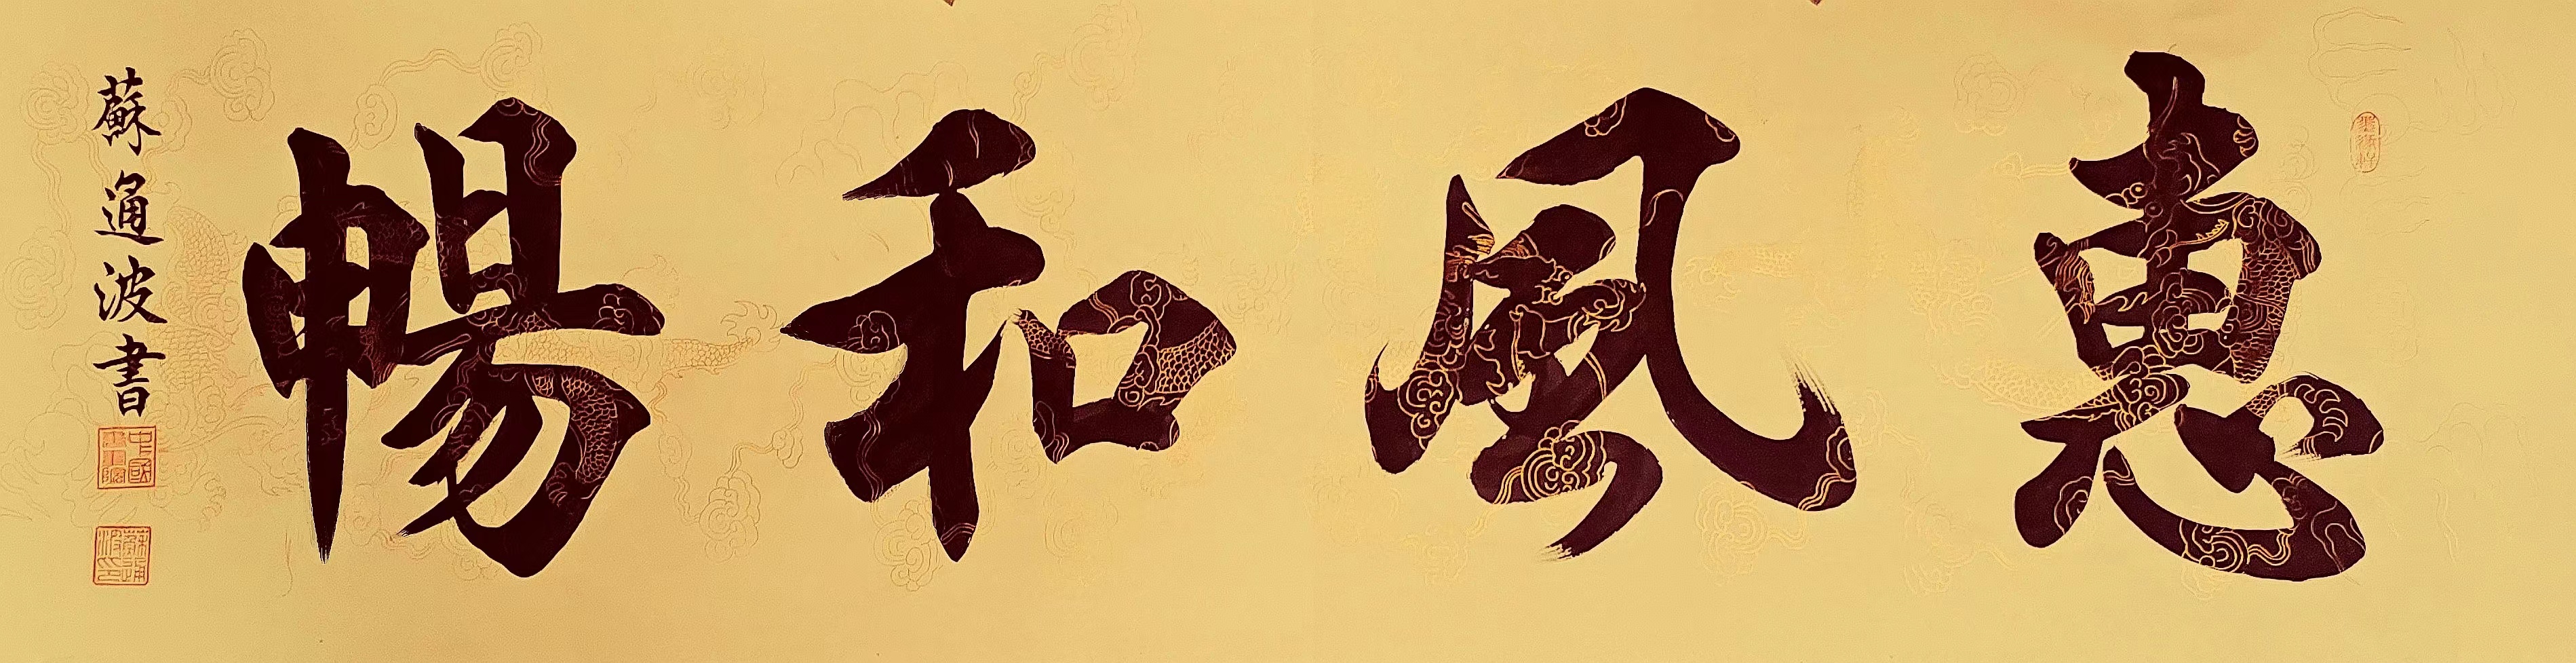 惠風和暢
蘇通波書
中國書畫院
蘇通波印